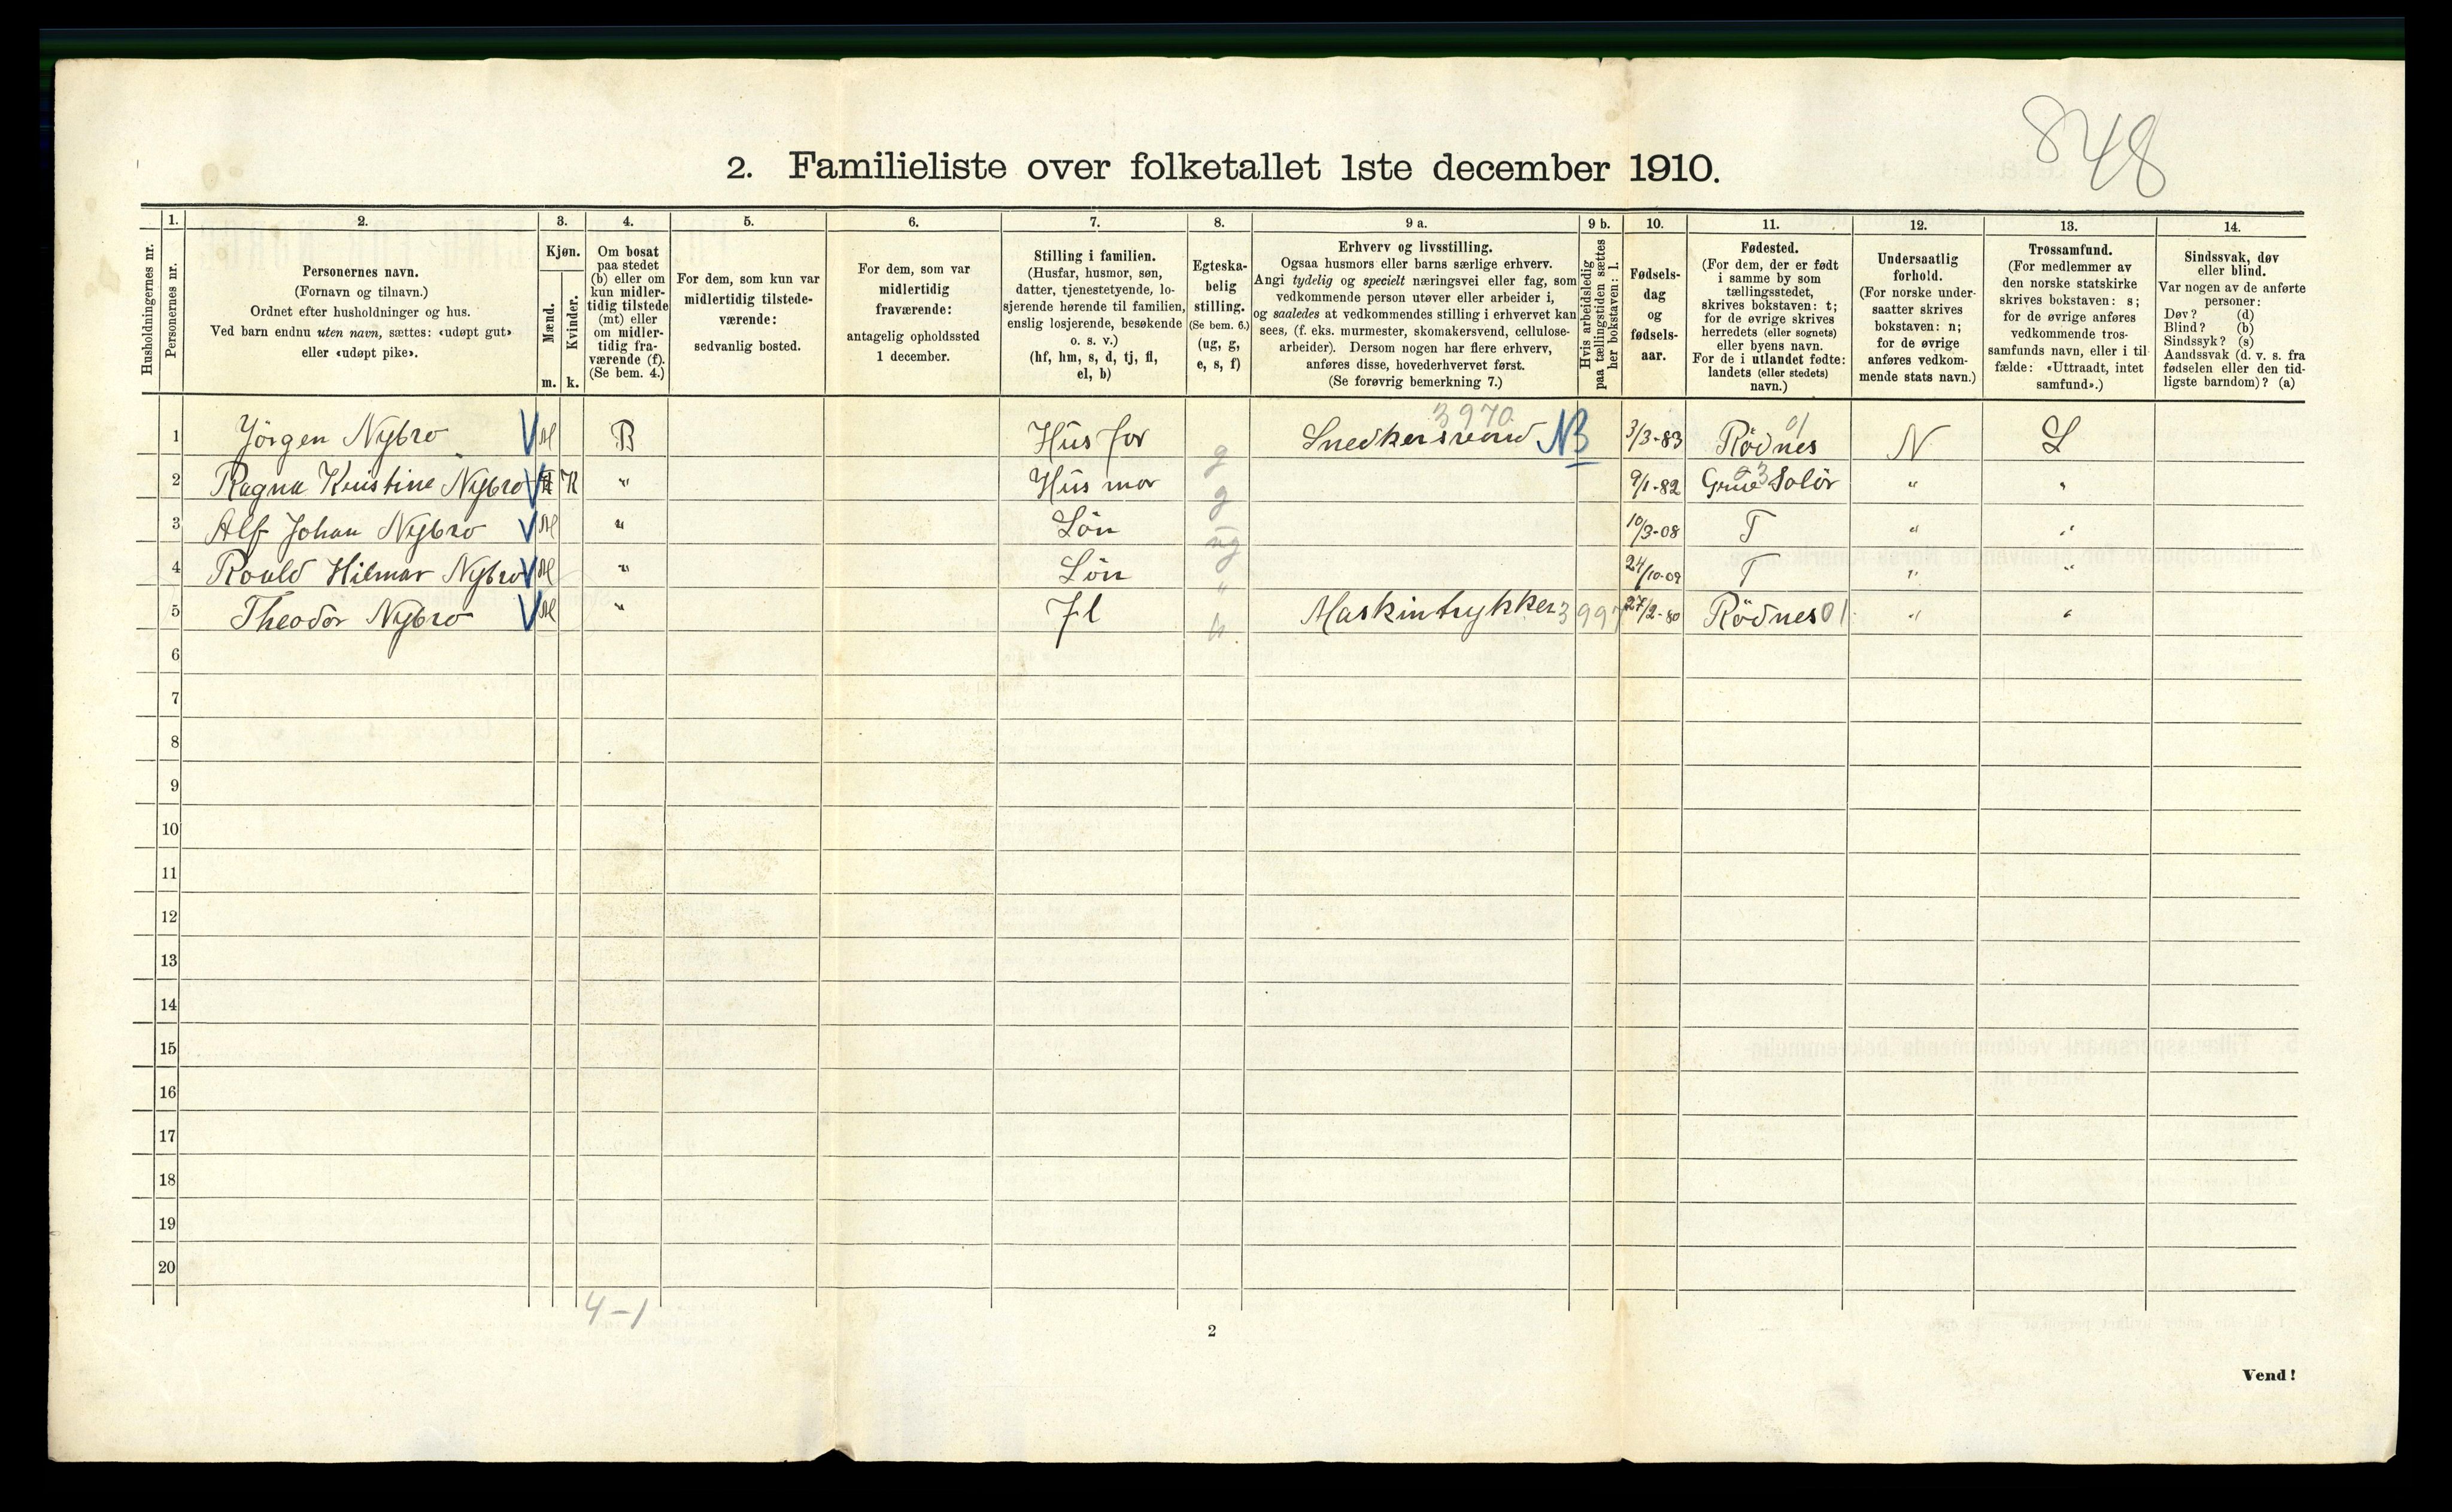 848
2. Familieliste over folketallet 1ste december 1910.
Husholdningernes nr.
1.
Personernes nr.
2.
Personernes navn.
(Fornavn og tilnavn.)
Ordnet efter husholdninger og hus.
Ved barn endnu uten navn, sættes: «udøpt gut»
eller «udøpt pike».
3.
Kjøn.
Mænd.
Kvinder.
m. k.
4.
Om bosat
paa stedet
(b) eller om
kun midler-
tidig tilstede
(mt) eller
om midler-
tidig fra-
værende (f).
(Se bem. 4.)
5.
For dem, som kun var
midlertidig tilstede-
værende:
sedvanlig bosted.
6.
For dem, som var
midlertidig
fraværende:
antagelig opholdssted
1 december.
7.
Stilling i familien.
(Husfar, husmor, søn,
datter, tjenestetyende, lo-
sjerende hørende til familien,
enslig losjerende, besøkende
o. s. v.)
(hf, hm, s, d, tj, fl,
el, b)
8.
Egteska-
belig
stilling.
(Se bem. 6.)
(ug, g,
e, s, f)
9 a.
Erhverv og livsstilling.
Ogsaa husmors eller barns særlige erhverv.
Angi tydelig og specielt næringsvei eller fag, som
vedkommende person utøver eller arbeider i,
og saaledes at vedkommendes stilling i erhvervet kan
sees, (f. eks. murmester, skomakersvend, cellulose-
arbeider). Dersom nogen har flere erhverv,
anføres disse, hovederhvervet først.
(Se forøvrig bemerkning 7.)
9 b.
Hvis arbeidsledig
paa tællingstiden sættes
her bokstaven: l.
10.
Fødsels-
dag
og
fødsels-
aar.
11.
Fødested.
(For dem, der er født
i samme by som
tællingsstedet,
skrives bokstaven: t;
for de øvrige skrives
herredets (eller sognets)
eller byens navn.
For de i utlandet fødte:
landets (eller stedets)
navn.)
12.
Undersaatlig
forhold.
(For norske under-
saatter skrives
bokstaven: n;
for de øvrige
anføres vedkom-
mende stats navn.)
13.
Trossamfund.
(For medlemmer av
den norske statskirke
skrives bokstaven: s;
for de øvrige anføres
vedkommende tros-
samfunds navn, eller i til-
fælde: «Uttraadt, intet
samfund».)
14.
Sindssvak, døv
eller blind.
Var nogen av de anførte
personer:
Døv? (d)
Blind? (b)
Sindssyk? (s)
Aandssvak (d. v. s. fra
fødselen eller den tid-
ligste barndom)? (a)
3970 01
1 Jörgen Nybro V M B Hus far g Snedkersvend NB 3/3-83 Rödnes N S
2 Ragna Kristine Nybro V K " Hus mor g 9/1-82 Grue Solör " "
3 Alf Johan Nybro V M " Sön ug 10/3-08 T " "
4 Roald Hilmar Nybro V M " Sön " 24/10-09 T " "
5 Theodor Nybro V M " Fl Maskintrykker 3997 27/2-80 Rödnes 01 " "
6
7
8
9
10
11
12
13
14
15
16
17
18
19
20
4-1
2
Vend!